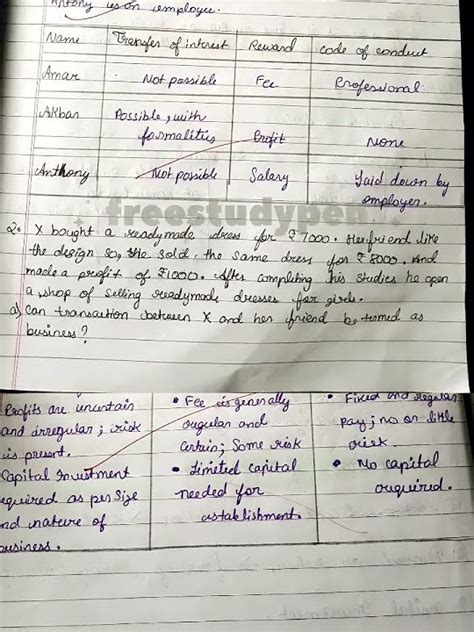 Antony is an employee.
Name Transfer of interest Reward code of conduct
Amar Not possible Fee Professional
Akbar Possible, with formalities Profit None
Anthony Not possible Salary Laid down by employer.
freestudypen
Q. X bought a readymade dress for ₹7000. Her friend like
the design so, she sold the same dress for ₹8000. And
made a profit of ₹1000. After completing his studies he open
a shop of selling readymade dresses for girls.
a) Can transaction between X and her friend be termed as
business?
Profits are uncertain
and irregular; risk
is present.
Capital Investment
required as per size
and nature of
business.
• Fee is generally
regular and
certain; Some risk
• Limited capital
needed for
establishment.
• Fixed and regular
pay; no or little
risk.
• No capital
required.